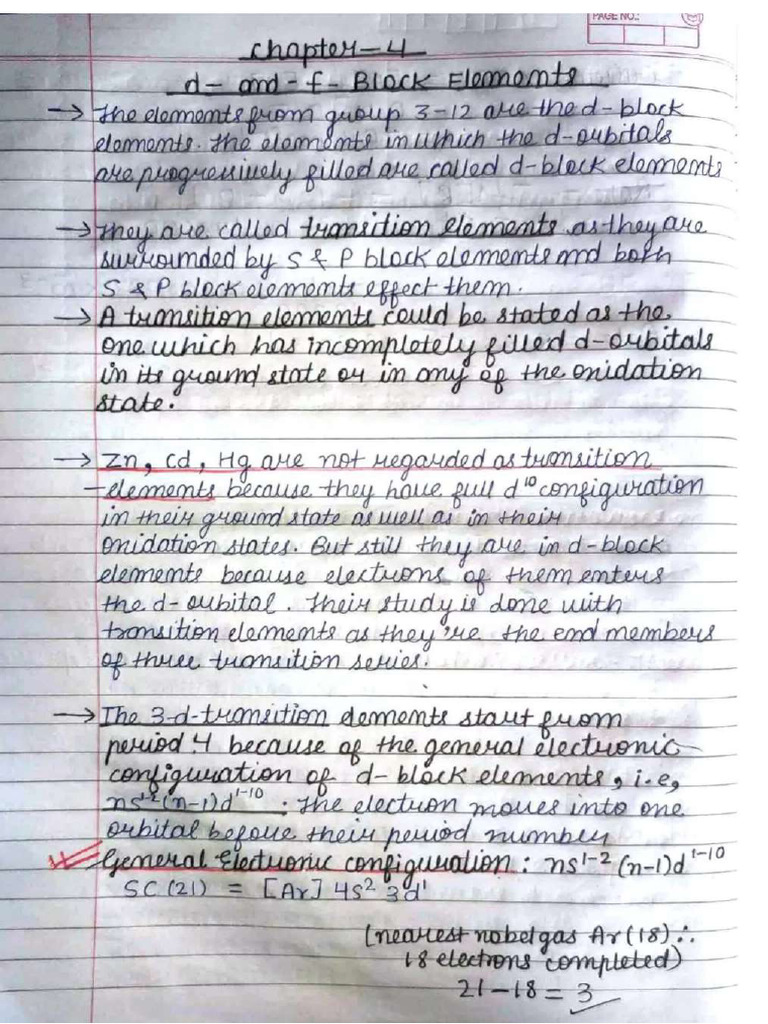 PAGE NO.:
Chapter-4
d- and -f- Block Elements
→ The elements from group 3-12 are the d-block
elements. The elements in which the d-orbitals
are progressively filled are called d-block elements
→ They are called transition elements as they are
surrounded by S & P block elements and both
S & P block elements effect them.
→ A transition elements could be stated as the
one which has incompletely filled d-orbitals
in its ground state or in any of the onidation
state.
→ Zn, Cd, Hg are not regarded as transition
elements because they have full d¹⁰ configuration
in their ground state as well as in their
onidation states. But still they are in d-block
elements because electrons of them enters
the d-orbital. Their study is done with
transition elements as they're the end members
of three transition series.
→ The 3-d-transition elements start from
period 4 because of the general electronic
configuration of d-block elements, i.e,
ns¹⁻² (n-1)d¹⁻¹⁰. The electron moves into one
orbital before their period number
General Electronic configuration: ns¹⁻² (n-1)d¹⁻¹⁰
SC (21) = [Ar] 4s² 3d¹
(nearest nobel gas Ar(18) ∴
18 electrons completed)
21-18 = 3